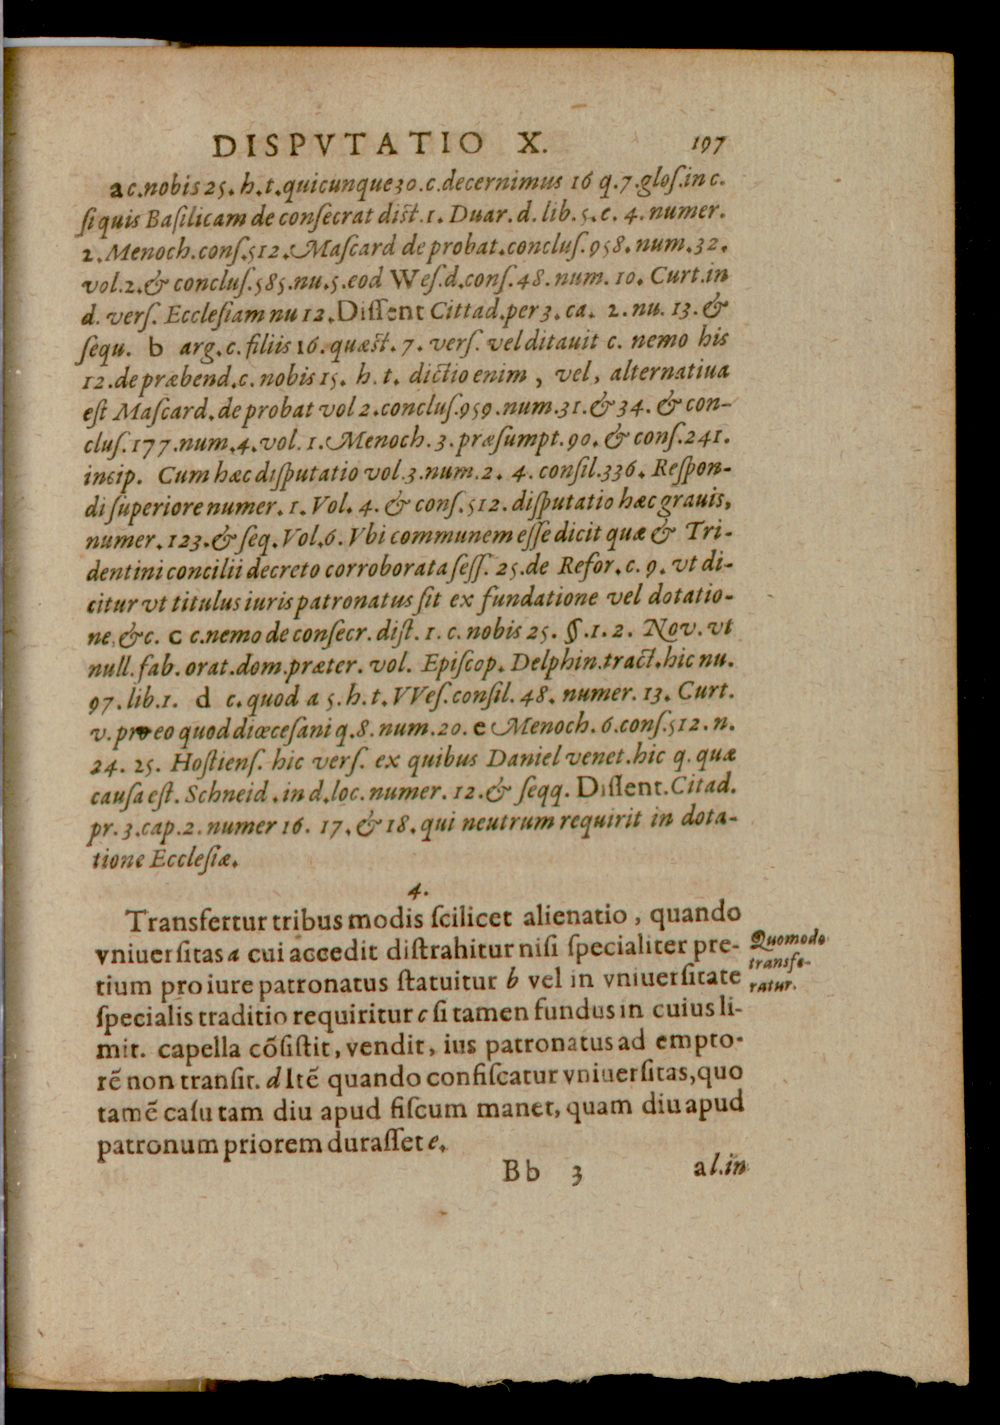 DISPVTATIO X. 197
a c.nobis 25. h.t.quicunque 30.c.decernimus 16 q.7.gloſ.in c.
ſi quis Baſilicam de conſecrat diſt.1. Duar. d. lib. 5. c. 4. numer.
2. Menoch.conſ.512. Maſcard de probat.concluſ.958. num.32.
vol.2.& concluſ.585.nu.5.eod Weſ.d.conſ.48.num. 10. Curt.in
d. verſ. Eccleſiam nu 12. Diſſent Cittad.per 3. ca. 2. nu. 13. &
ſequ. b arg.c.filiis 16.quæſt. 7. verſ. vel ditauit c. nemo his
12.de præbend.c.nobis 15. h. t. dictio enim , vel, alternatiua
eſt Maſcard.de probat vol 2.concluſ.959.num.31.& 34. & con-
cluſ.177.num.4.vol. 1. Menoch. 3. præſumpt.90. & conſ.241.
incip. Cum hæc diſputatio vol.3.num.2. 4. conſil.336. Reſpon-
di ſuperiore numer. 1. Vol. 4. & conſ.512. diſputatio hæc grauis,
numer. 123.& ſeq. Vol.6. Vbi communem eſſe dicit quæ & Tri-
dentini concilii decreto corroborata ſeſſ. 25.de Refor. c. 9. vt di-
citur vt titulus iuris patronatus ſit ex fundatione vel dotatio-
ne &c. c c.nemo de conſecr. diſt. 1. c. nobis 25. §.1.2. Nov. vt
null.fab.orat.dom.præter. vol. Epiſcop. Delphin.tract.hic nu.
97.lib.1. d c. quod a 5. h.t. VVeſ.conſil. 48. numer. 13. Curt.
v. pro eo quod diœceſani q.8.num.20. e Menoch. 6.conſ.512. n.
24. 25. Hoſtienſ. hic verſ. ex quibus Daniel venet.hic q. quæ
cauſa eſt. Schneid.in d.loc.numer. 12.& ſeqq. Diſſent.Citad.
pr.3.cap.2.numer 16. 17.& 18.qui neutrum requirit in dota-
tione Eccleſiæ.
4.
Transfertur tribus modis ſcilicet alienatio , quando
vniuerſitas a cui accedit diſtrahitur niſi ſpecialiter pre-
tium pro iure patronatus ſtatuitur b vel in vniuerſitate
ſpecialis traditio requiritur c ſi tamen fundus in cuius li-
mit. capella cõſiſtit, vendit, ius patronatus ad empto-
rẽ non tranſit. d Itẽ quando confiſcatur vniuerſitas, quo
tamẽ caſu tam diu apud fiſcum manet, quam diu apud
patronum priorem duraſſet e.
Quomodo
transfe-
ratur.
Bb 3 a l.in